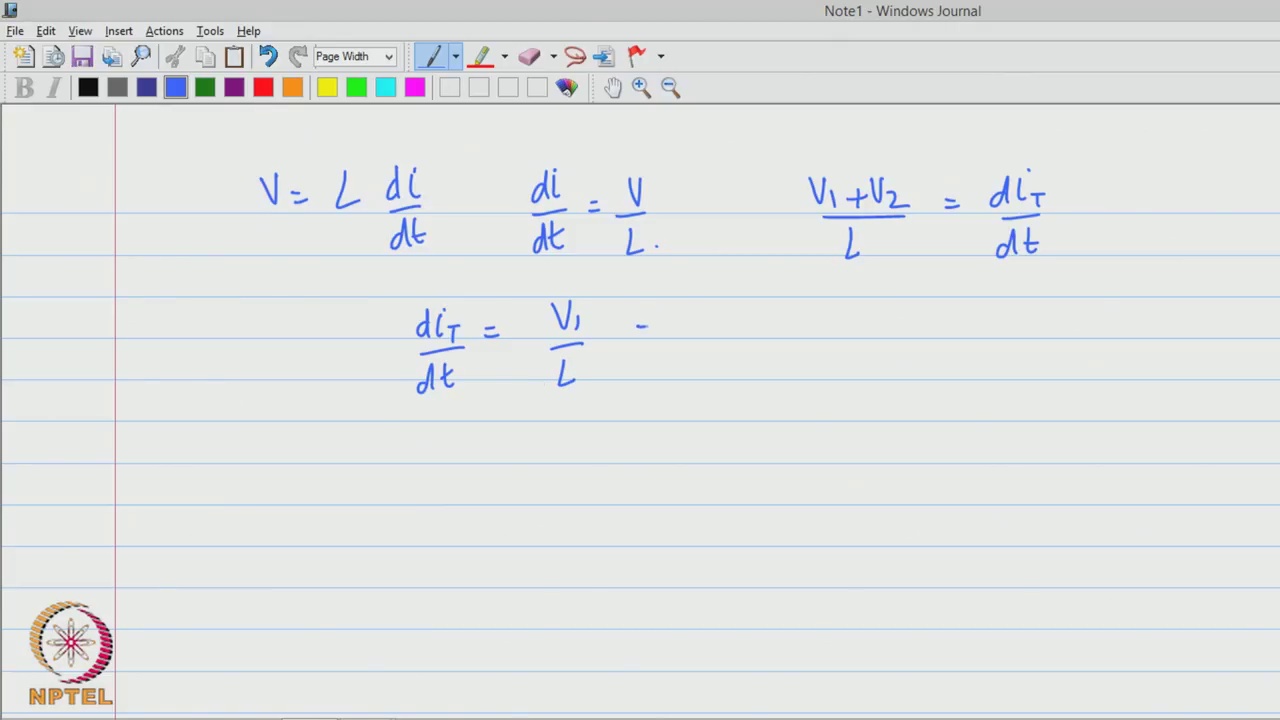 Note1 - Windows Journal
File Edit View Insert Actions Tools Help
Page Width
B I
V = L di/dt di/dt = V/L. V1+V2/L = diT/dt
diT/dt = V1/L -
NPTEL